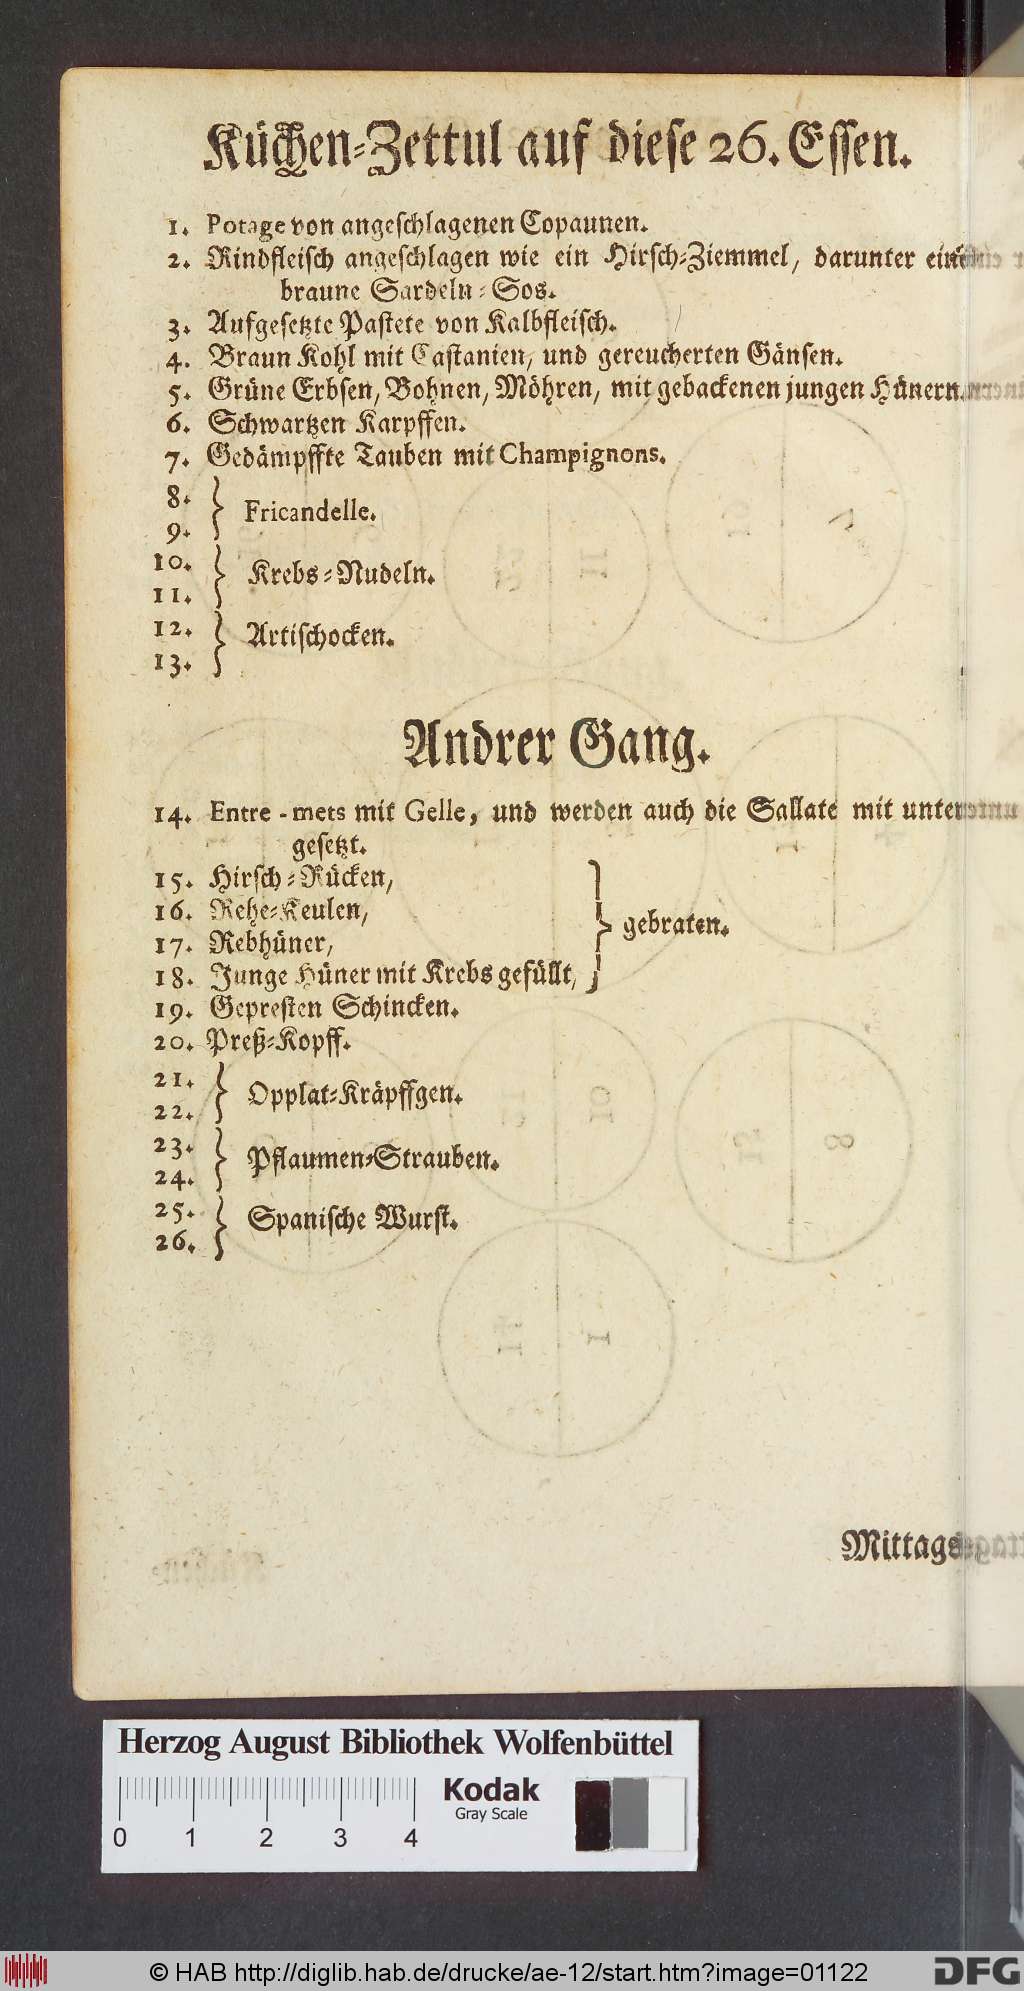 Küchen-Zettul auf diese 26. Essen.
1. Potage von angeschlagenen Copaunen.
2. Rindfleisch angeschlagen wie ein Hirsch-Ziemmel, darunter eine
braune Sardeln-Sos.
3. Aufgesetzte Pastete von Kalbfleisch.
4. Braun Kohl mit Castanien, und gereucherten Gänsen.
5. Grüne Erbsen, Bohnen, Möhren, mit gebackenen jungen Hünern.
6. Schwartzen Karpffen.
7. Gedämpffte Tauben mit Champignons.
8.
9.
} Fricandelle.
10.
11.
} Krebs-Nudeln.
12.
13.
} Artischocken.
Andrer Gang.
14. Entre-mets mit Gelle, und werden auch die Sallate mit unter
gesetzt.
15. Hirsch-Rücken,
16. Rehe-Keulen,
17. Rebhüner,
18. Junge Hüner mit Krebs gefüllt,
} gebraten.
19. Gepresten Schincken.
20. Preß-Kopff.
21.
22.
} Opplat-Kräpffgen.
23.
24.
} Pflaumen-Strauben.
25.
26.
} Spanische Wurst.
Mittags
Herzog August Bibliothek Wolfenbüttel
Kodak
Gray Scale
0 1 2 3 4
© HAB http://diglib.hab.de/drucke/ae-12/start.htm?image=01122
DFG